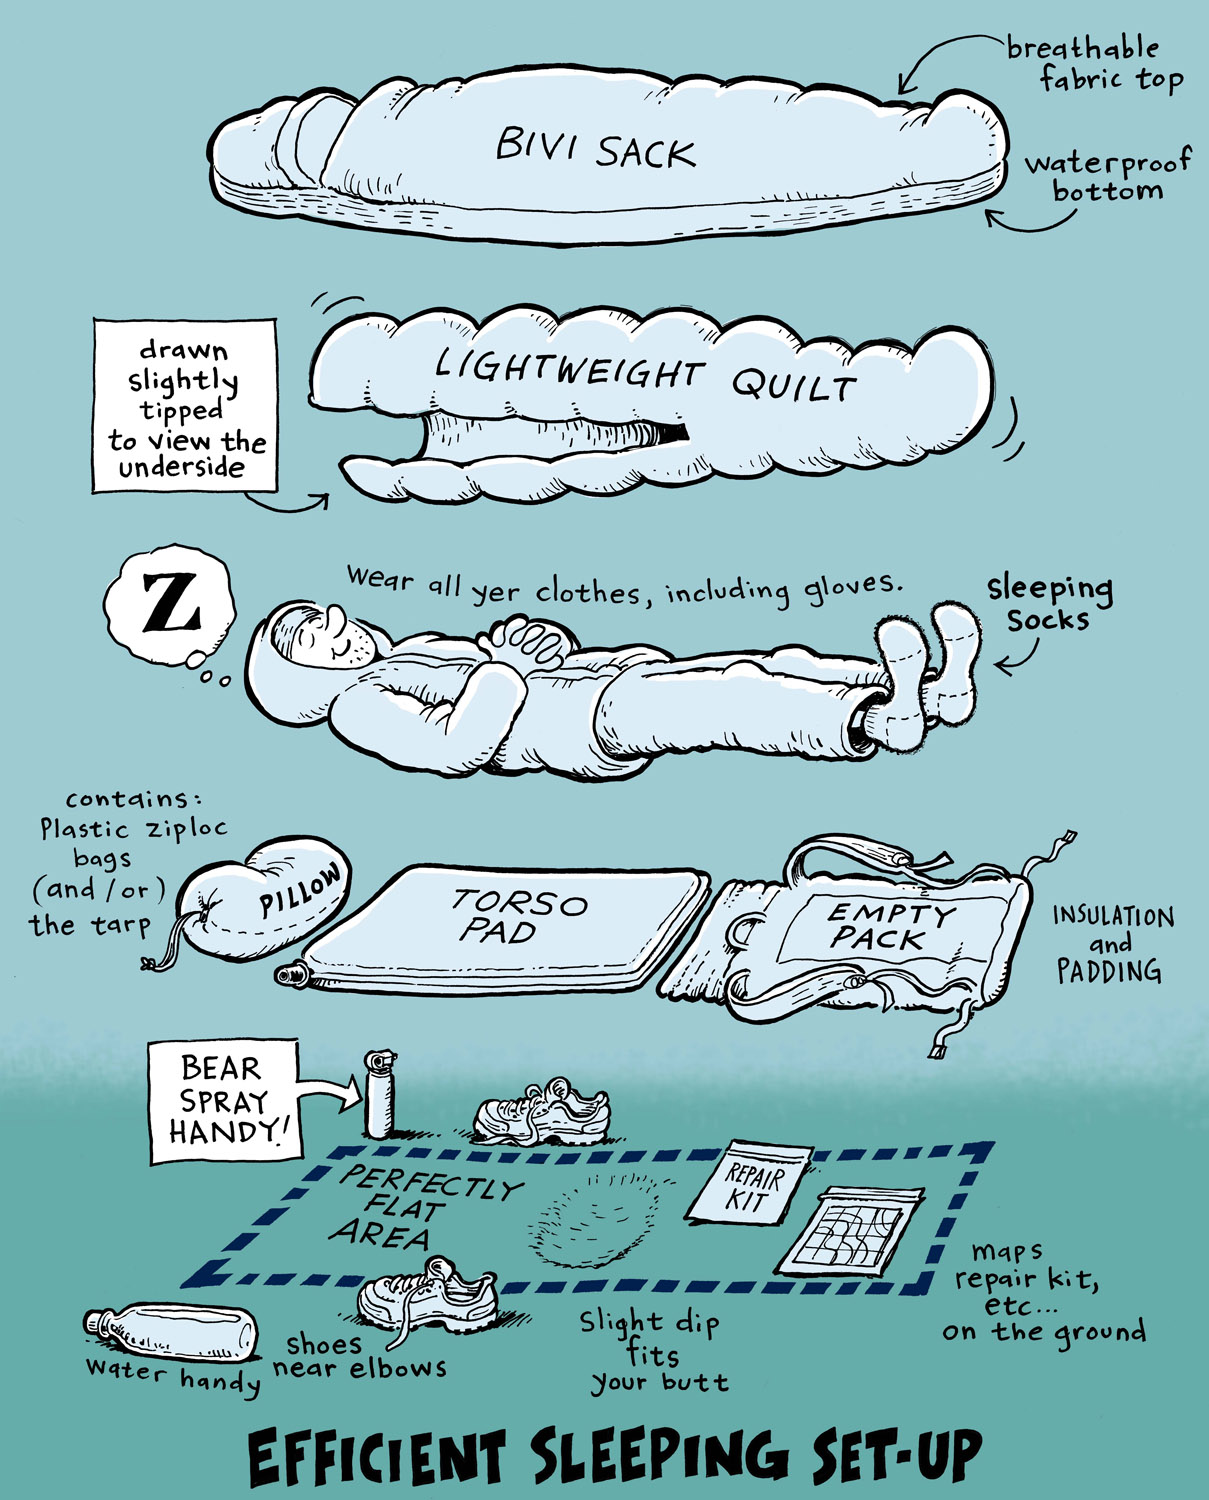 breathable
fabric top
BIVI SACK
waterproof
bottom
drawn
slightly
tipped
to view the
underside
LIGHTWEIGHT QUILT
Z
wear all yer clothes, including gloves.
sleeping
socks
contains:
Plastic ziploc
bags
(and/or)
the tarp
PILLOW
TORSO
PAD
EMPTY
PACK
INSULATION
and
PADDING
BEAR
SPRAY
HANDY!
PERFECTLY
FLAT
AREA
REPAIR
KIT
maps
repair kit,
etc...
on the ground
water handy
shoes
near elbows
Slight dip
fits
your butt
EFFICIENT SLEEPING SET-UP